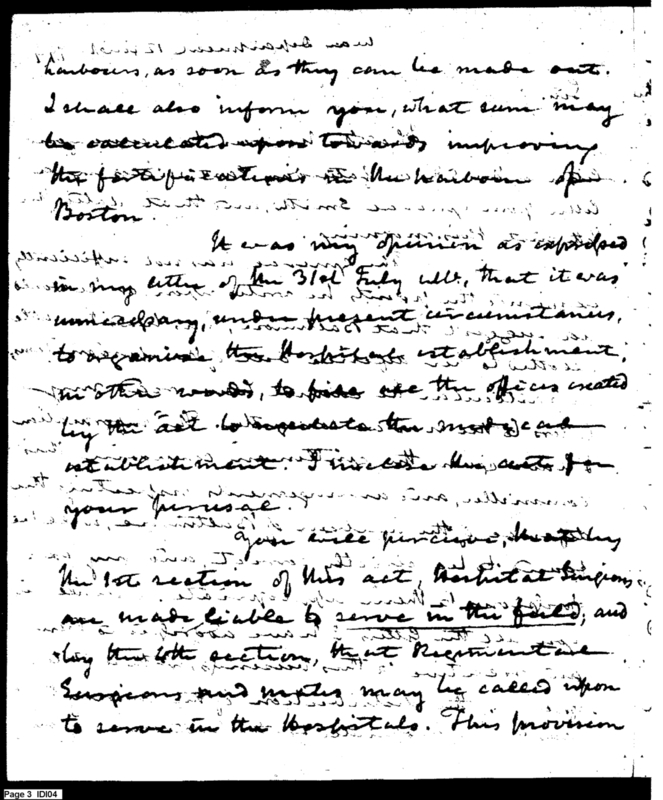 harbours, as soon as they can be made out.
I shall also inform you, what sum may
be calculated upon towards improving
the fortifications in the harbour of
Boston.
It was my opinion as expressed
in my letter of the 31st July ulto, that it was
unnecessary, under present circumstances,
to organise the Hospital establishment,
in other words, to fill all the offices created
by the act to regulate the medical
establishment. I inclose the acts for
your perusal.
You will perceive, that by
the 1st section of this act, Hospital Surgeons
are made liable to serve in the field, and
by the 4th section, that Regimental
Surgeons and mates may be called upon
to serve in the Hospitals. This provision
Page 3 IDI04